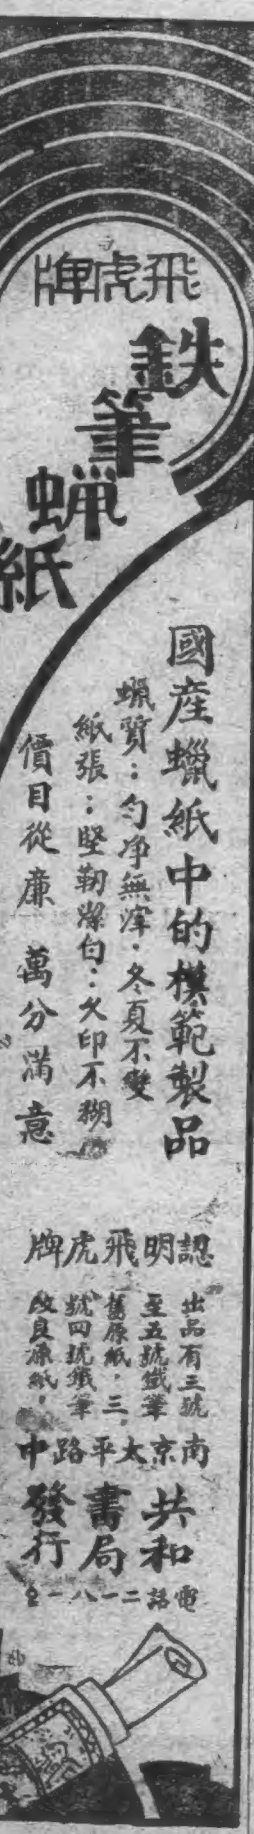 飛虎牌
鉄筆蝋紙
國産蠟紙中的模範製品
蠟質：勻净無滓．冬夏不變
紙張：堅韌潔白：久印不糊
價目從廉 萬分滿意
認明飛虎牌
出品有三號
至五號鐵筆
舊原紙．三
號四號鐵筆
改良原紙．
南京太平路中
共和書局發行
電話二一八一